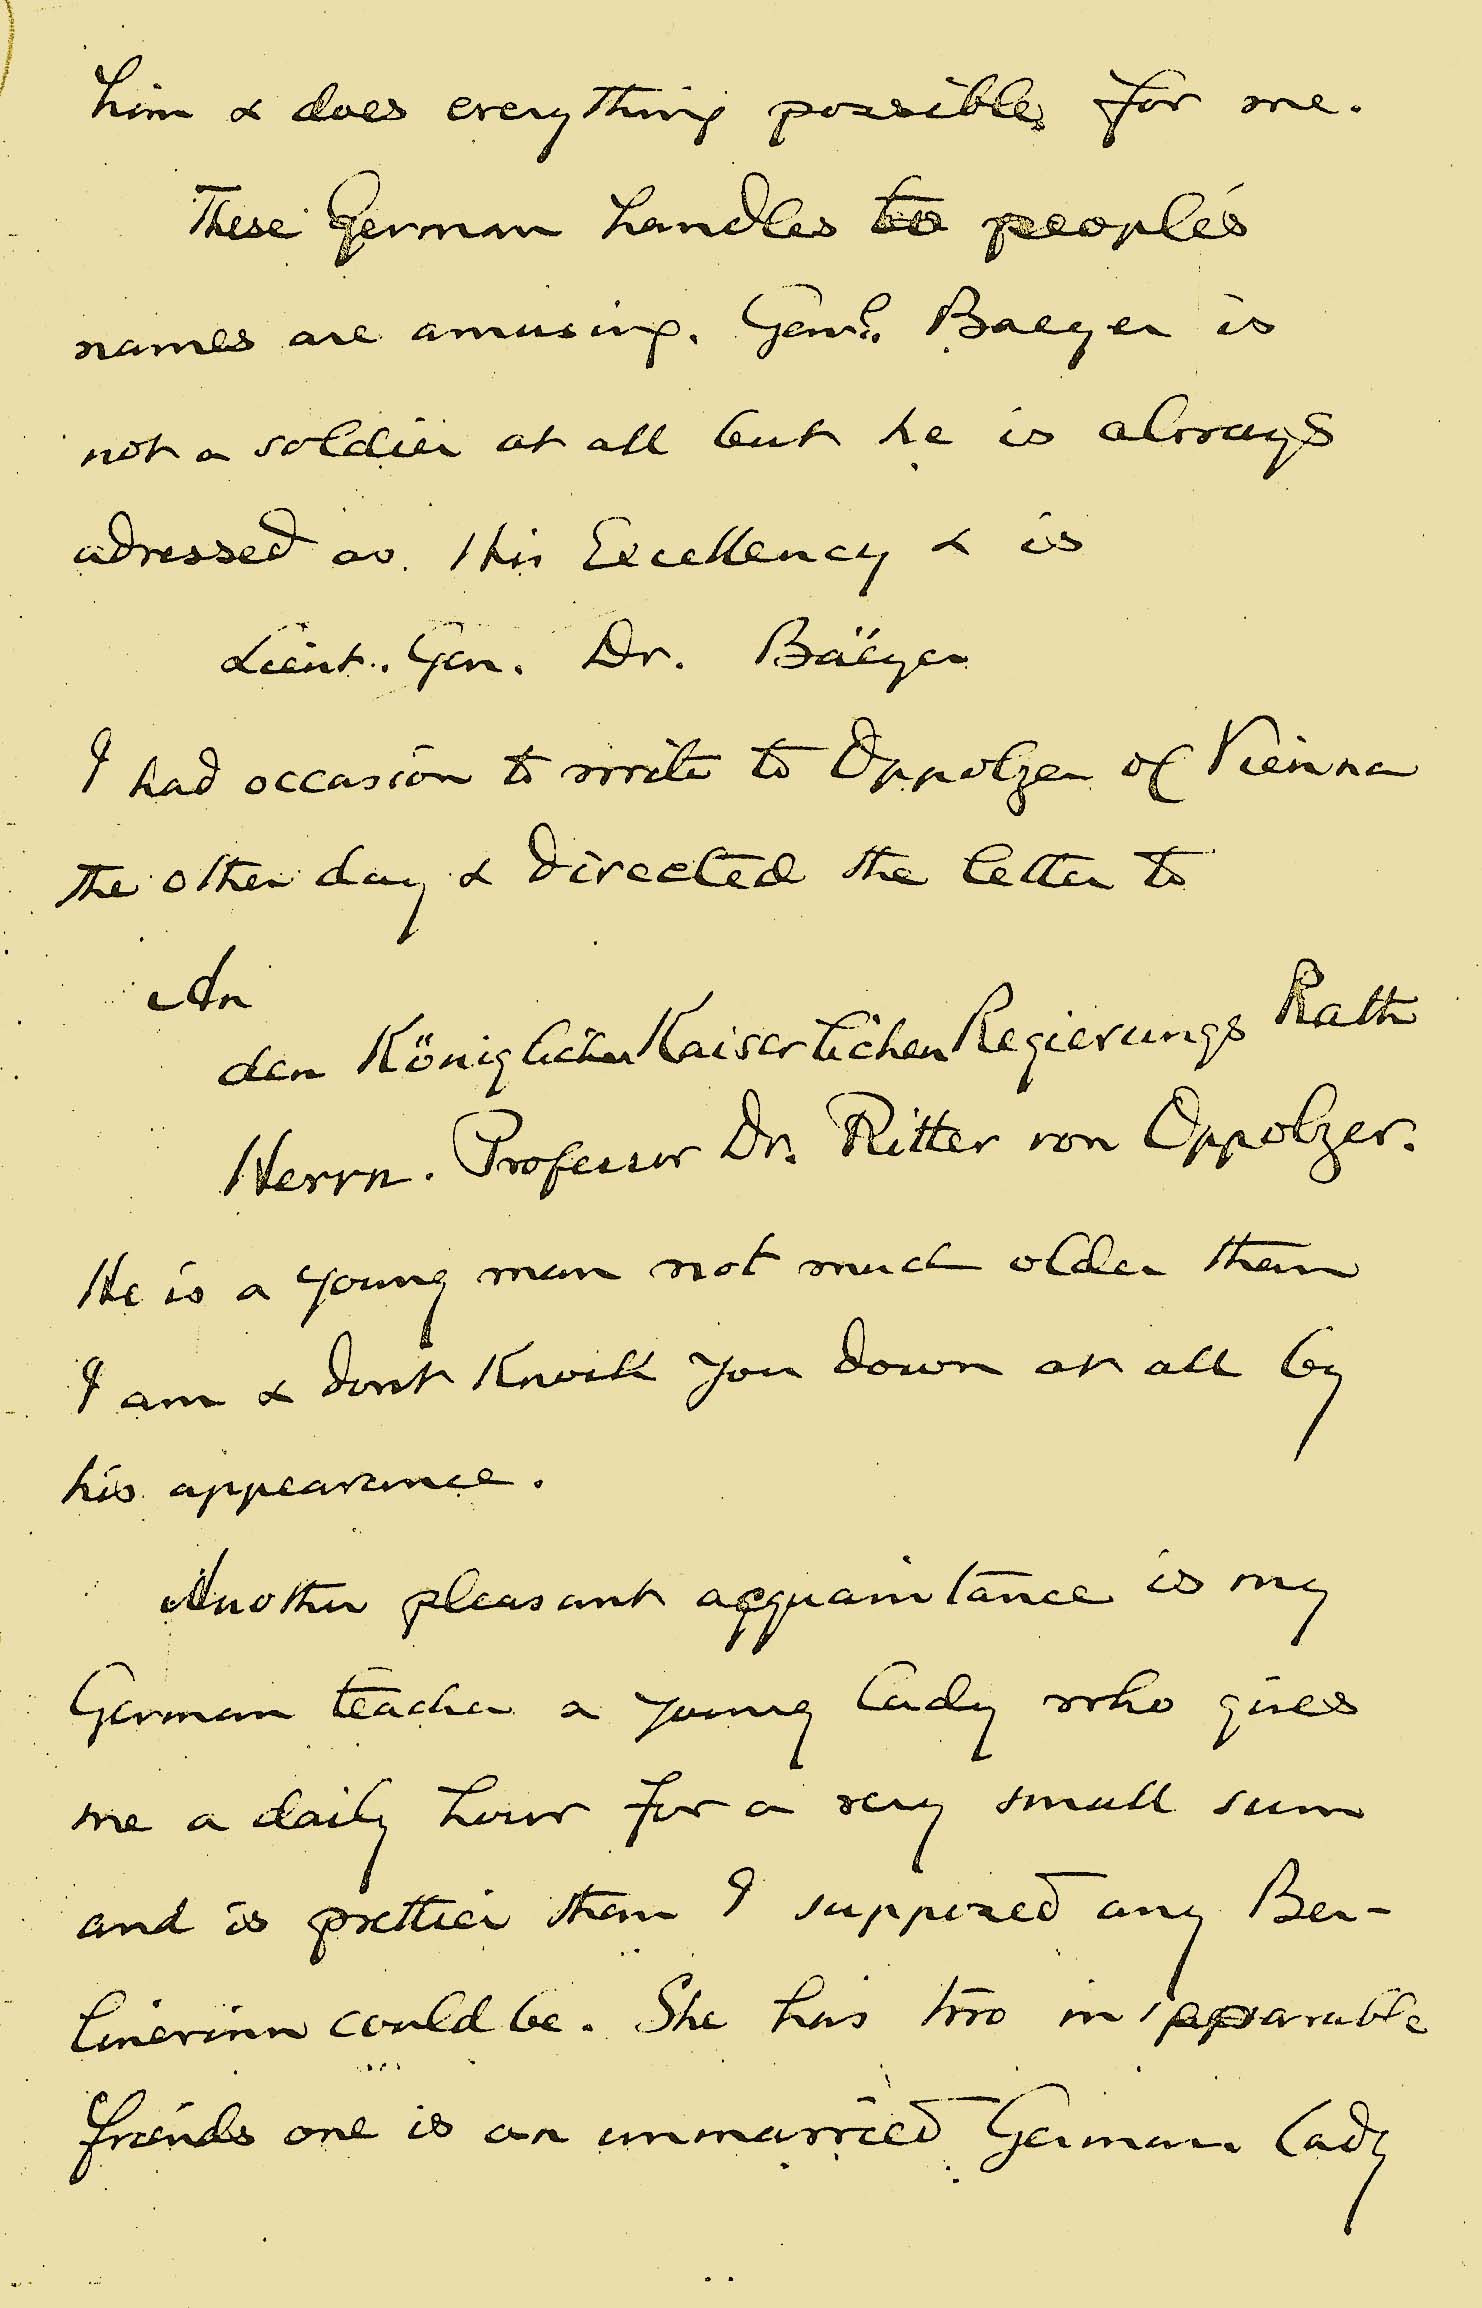 him & does everything possible for me.
These German handles to people's
names are amusing. Genl. Baeyer is
not a soldier at all but he is always
adressed as His Excellency & is
Lieut. Gen. Dr. Bäeyer
I had occasion to write to Oppolzer of Vienna
the other day & directed the letter to
An
den Königlichen Kaiserlichen Regierungs Rath
Herrn. Professor Dr. Ritter von Oppolzer.
He is a young man not much older than
I am & dont knock you down at all by
his appearance.
Another pleasant acquaintance is my
German teacher a young lady who gives
me a daily hour for a very small sum
and is prettier than I supposed any Ber-
linerinn could be. She has two inseparable
friends one is an unmarried German lady